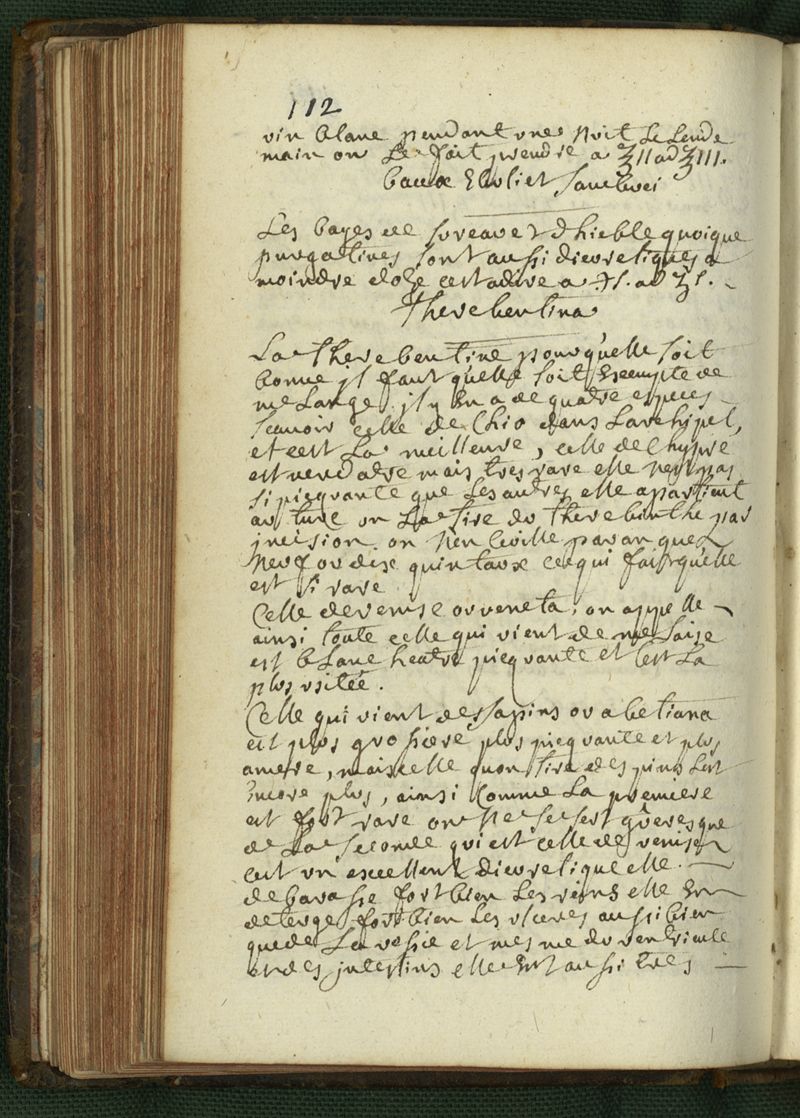 112
vin blanc pendant une Nuit Le Lende
main on Le fait prendre a ʒII ad ʒIII.
baccæ Ebuli et Sambuci
Les bayes de sureau et d hieble quoique
purgatives sont aussi dieuretiques a
moindre doze cest adire a ad ʒ
Therebentina
La Therebentine pourquelle soit
bonne jl faut quelle soit Exempte de
me Lange jl y En a de quatre especes
scauoir celle de Chio dans Larchipel,
et cest La meilleure, celle de Chypre
est verdatre mais tres rare elle Nest pas
si picquante que Les autres elle apartient
au turc on La tire du therebinthe par
jncision on Nen Ceuille par an que
Neuf ou dix quintaux ce qui fait quelle
est si rare
Celle de venise ou veneta, on appelle
ainsi toute celle qui vient de meLaise
est blanchatre picquante et Cest La
plus usitée.
Celle qui vient des sapins ou abetiana
est plus grosiere plus picquante et plus
amere, mais celle quon tire des pins Lest
Encore plus, ainsi Comme La premiere
est fort rare on Ne se sert gueres que
de La seconde qui est celle de venise
cest un excellent dieuretique elle
debarasse fort bien Les reins elle En
deterge fort bien Les ulceres aussi bien
que de La vessie et mesme du ventricule
et des jntestins elle Est aussi tres